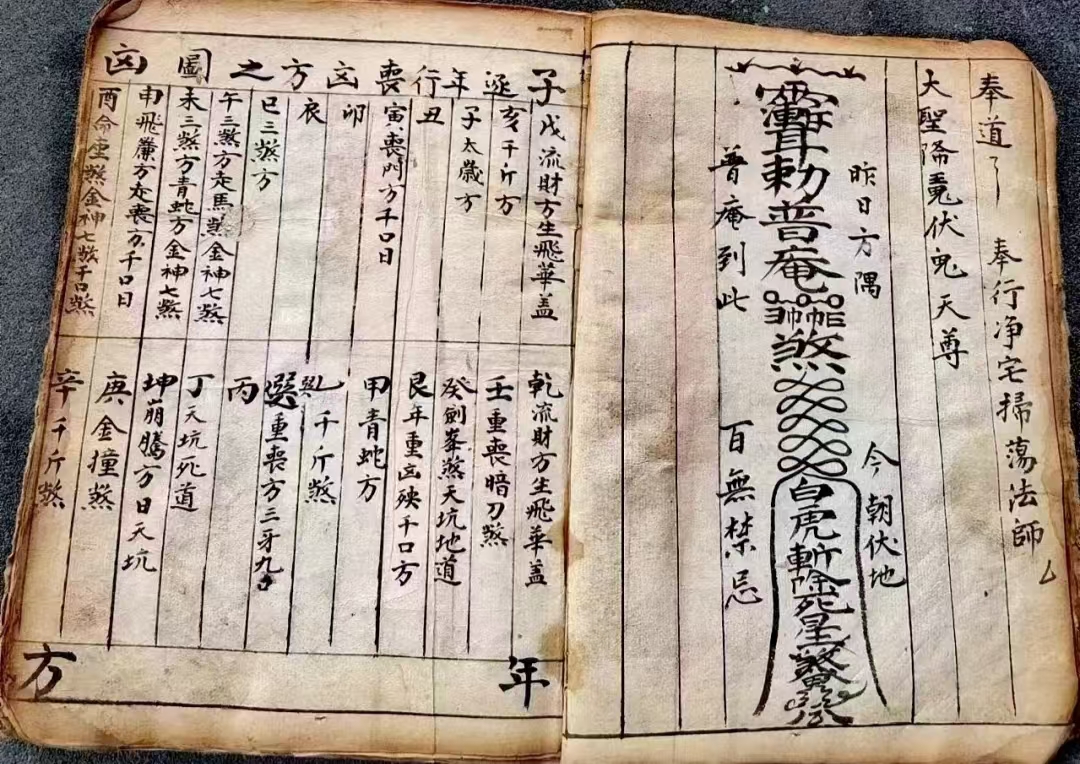 奉道 奉行净宅掃蕩法師
大聖降魔伏鬼天尊
昨日方隅 今朝伏地
勅普庵
煞
白虎斬除
普庵到此 百無禁忌
子逐年行喪凶方之圖凶
戊流財方生飛華盖
亥千斤方
子太歲方
丑
寅喪門方千口日
卯
辰
巳三煞方
午三煞方走馬煞金神七煞
未三煞方青蛇方金神七煞
申飛簾方走喪方千口日
酉命重煞金神七煞千口煞
乾流財方生飛華盖
壬重喪暗刀煞
癸劍峯煞天坑地道
艮年重凶殃千口方
甲青蛇方
乙千斤煞
選重喪方三牙九
丙
丁天坑死道
坤崩騰方日天坑
庚金撞煞
辛千斤煞
年方